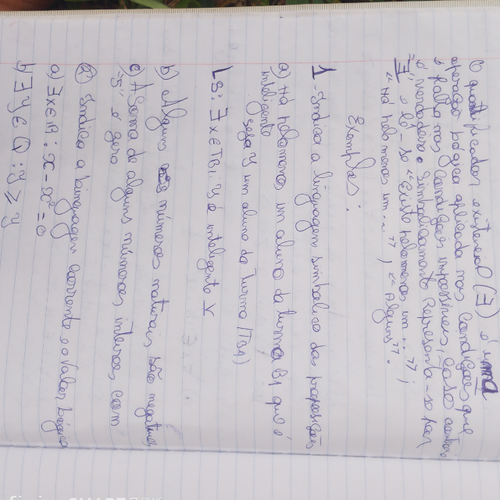 O quantificador existencial (∃) é uma
operação lógica aplicada nas condições que
é falsa nas condições impossíveis, caso contrário
é verdadeiro. Simbolicamente Representa-se por
"∃" e lê-se "Existe pelomenos um..." ;
"Há pelo menos um..." ; "Alguns".
Exemplos:
1-Indica a linguagem simbolica das proposições
a) Há pelomenos um aluno da turma B1 que é
inteligente
seja y um aluno da turma (TB1)
LS: ∃ x ∈ TB1: y é inteligente V
b) Alguns números naturais são negativos
c) A soma de alguns números inteiros com
"5" é zero
2) Indica a linguagem corrente e o valor lógico
a) ∃ x ∈ : x - x² = 0
b) ∃ y ∈ Q : y ≥ y